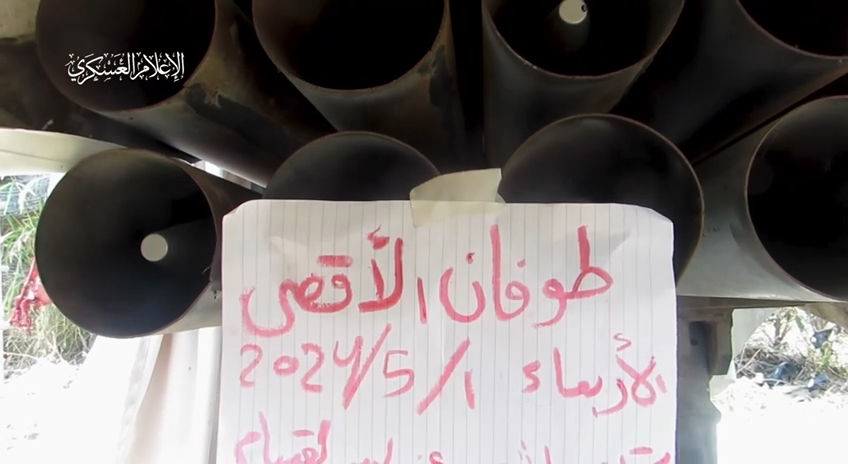 الإعلام العسكري
طوفان الأقصى
الأربعاء 2024/5/1